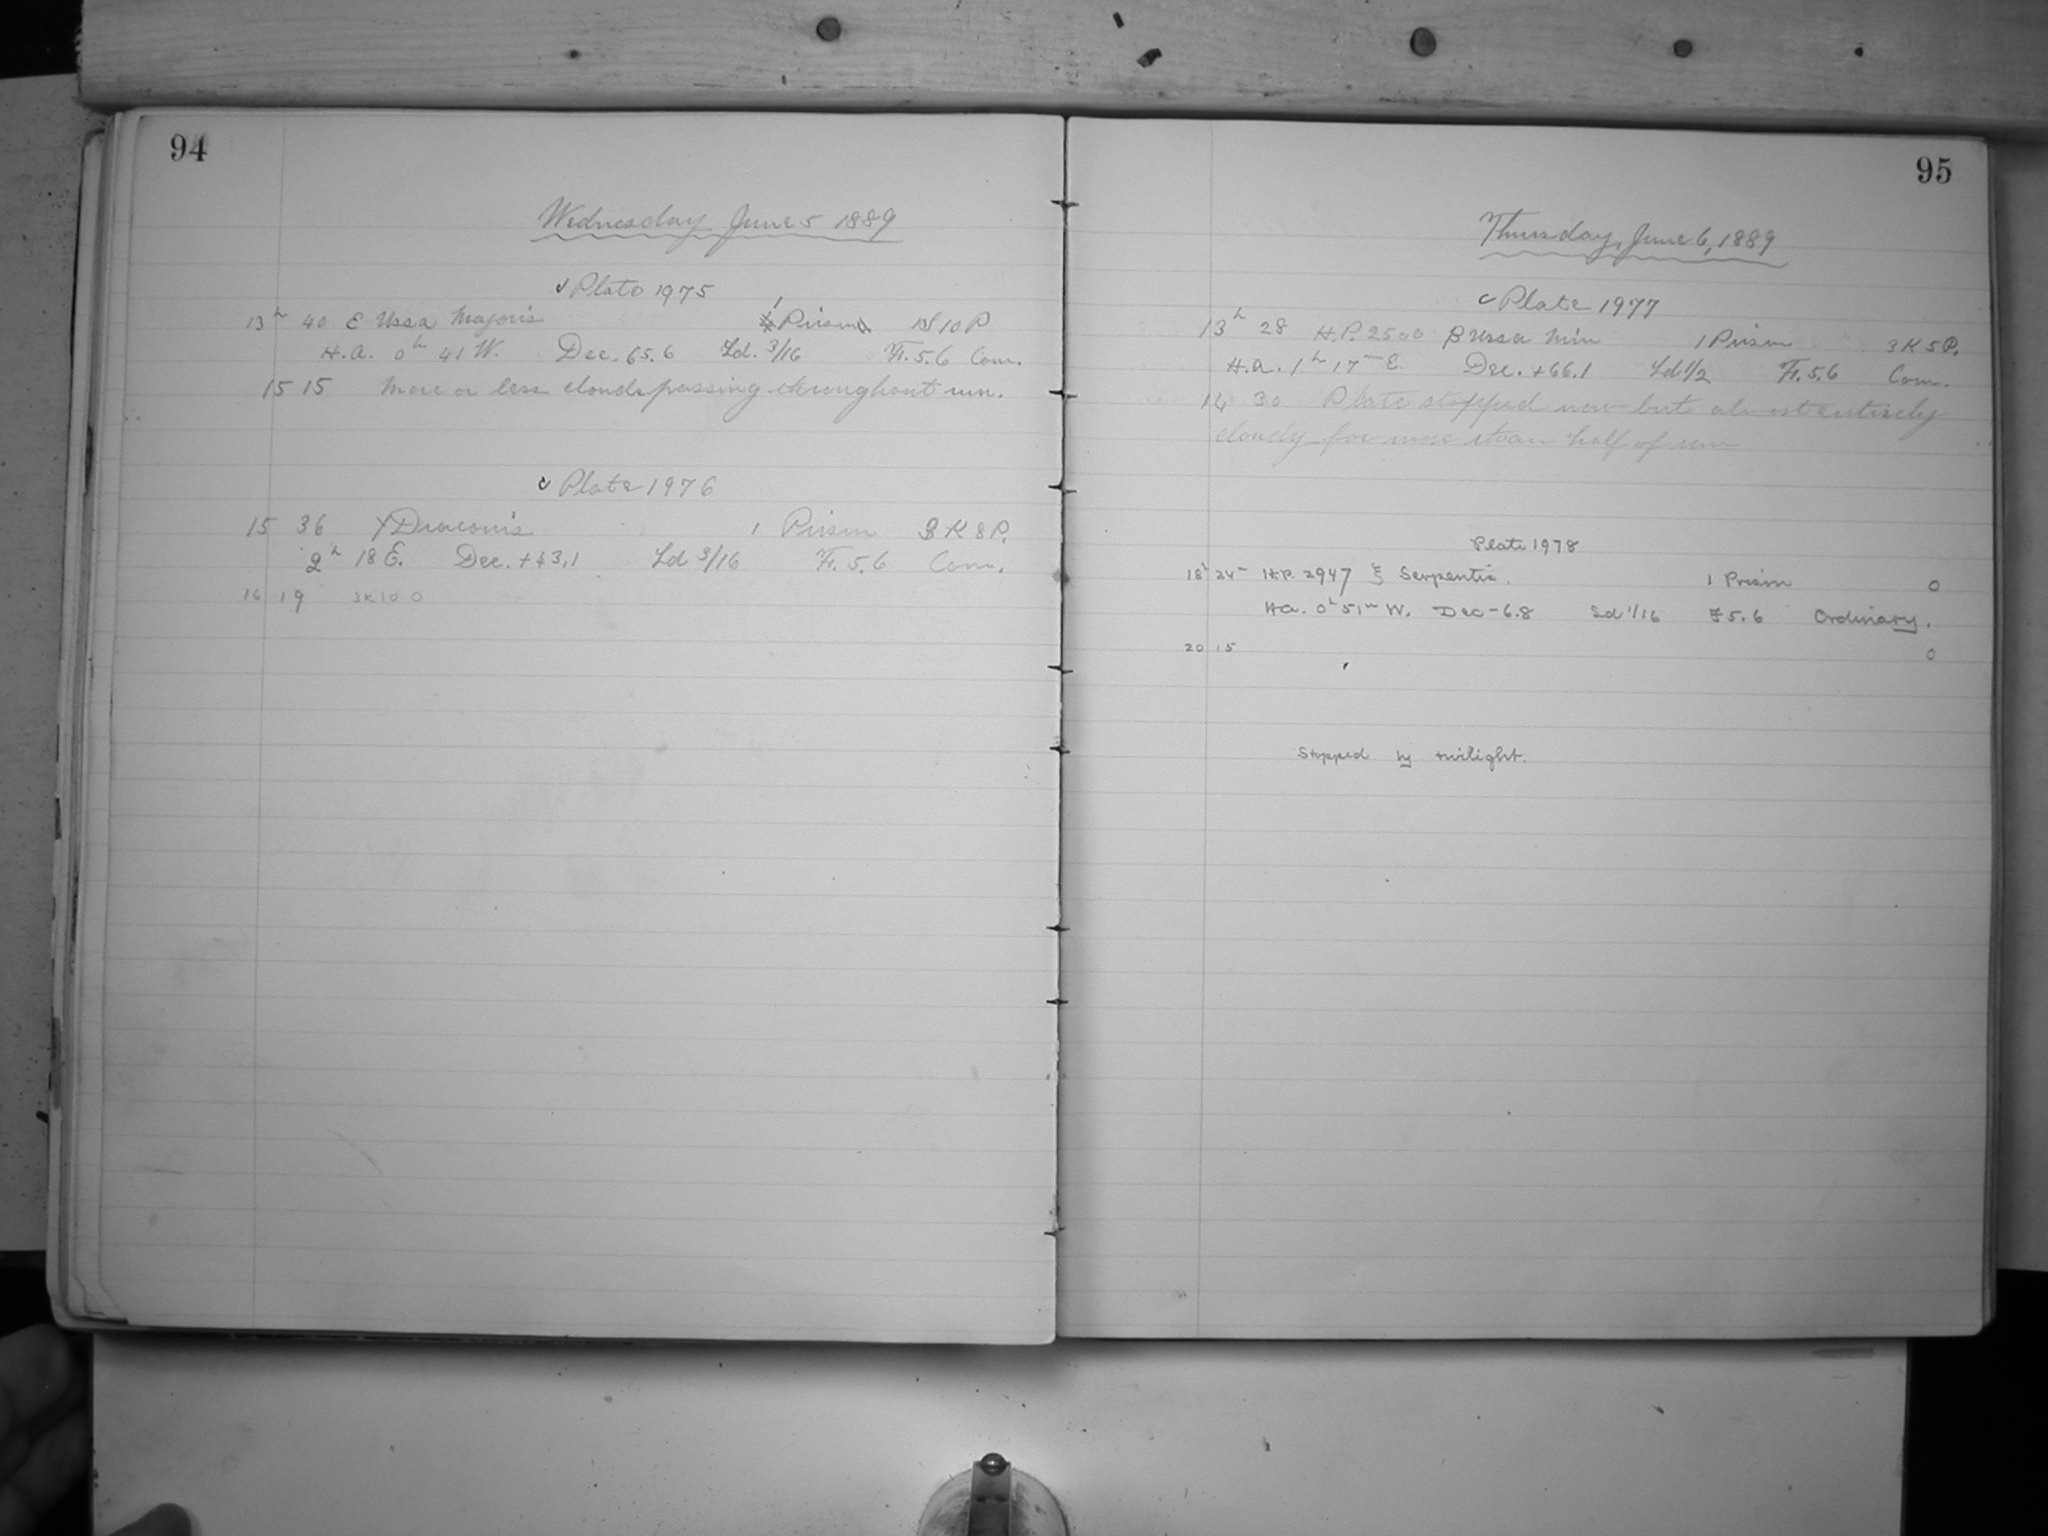 94
Wednesday June 5 1889
✓ Plate 1975
13h 40 E Ursa Majoris 1 Prism 10 P
H.A. 0h 41 W. Dec. 65.6 Ld. 3/16 F. 5.6 Com.
15 15 More or less clouds passing throughout run.
c Plate 1976
15 36 γ Draconis 1 Prism 3 K 8 P.
2h 18 E. Dec. +43.1 Ld 3/16 F. 5.6 Com.
16 19 3K 10 0
95
Thursday, June 6, 1889
c Plate 1977
13h 28 H.P. 2500 β Ursa Min 1 Prism 3 K 5 P.
H.A. 1h 17m E. Dec. +66.1 Ld 1/2 F. 5.6 Com.
14 30 Plate stopped now but almost entirely
cloudy for more than half of run
Plate 1978
18h 24m H.P. 2947 ξ Serpentis. 1 Prism 0
H.A. 0h 51m W. Dec -6.8 Ld 1/16 F 5.6 Ordinary.
20 15 0
Stopped by twilight.